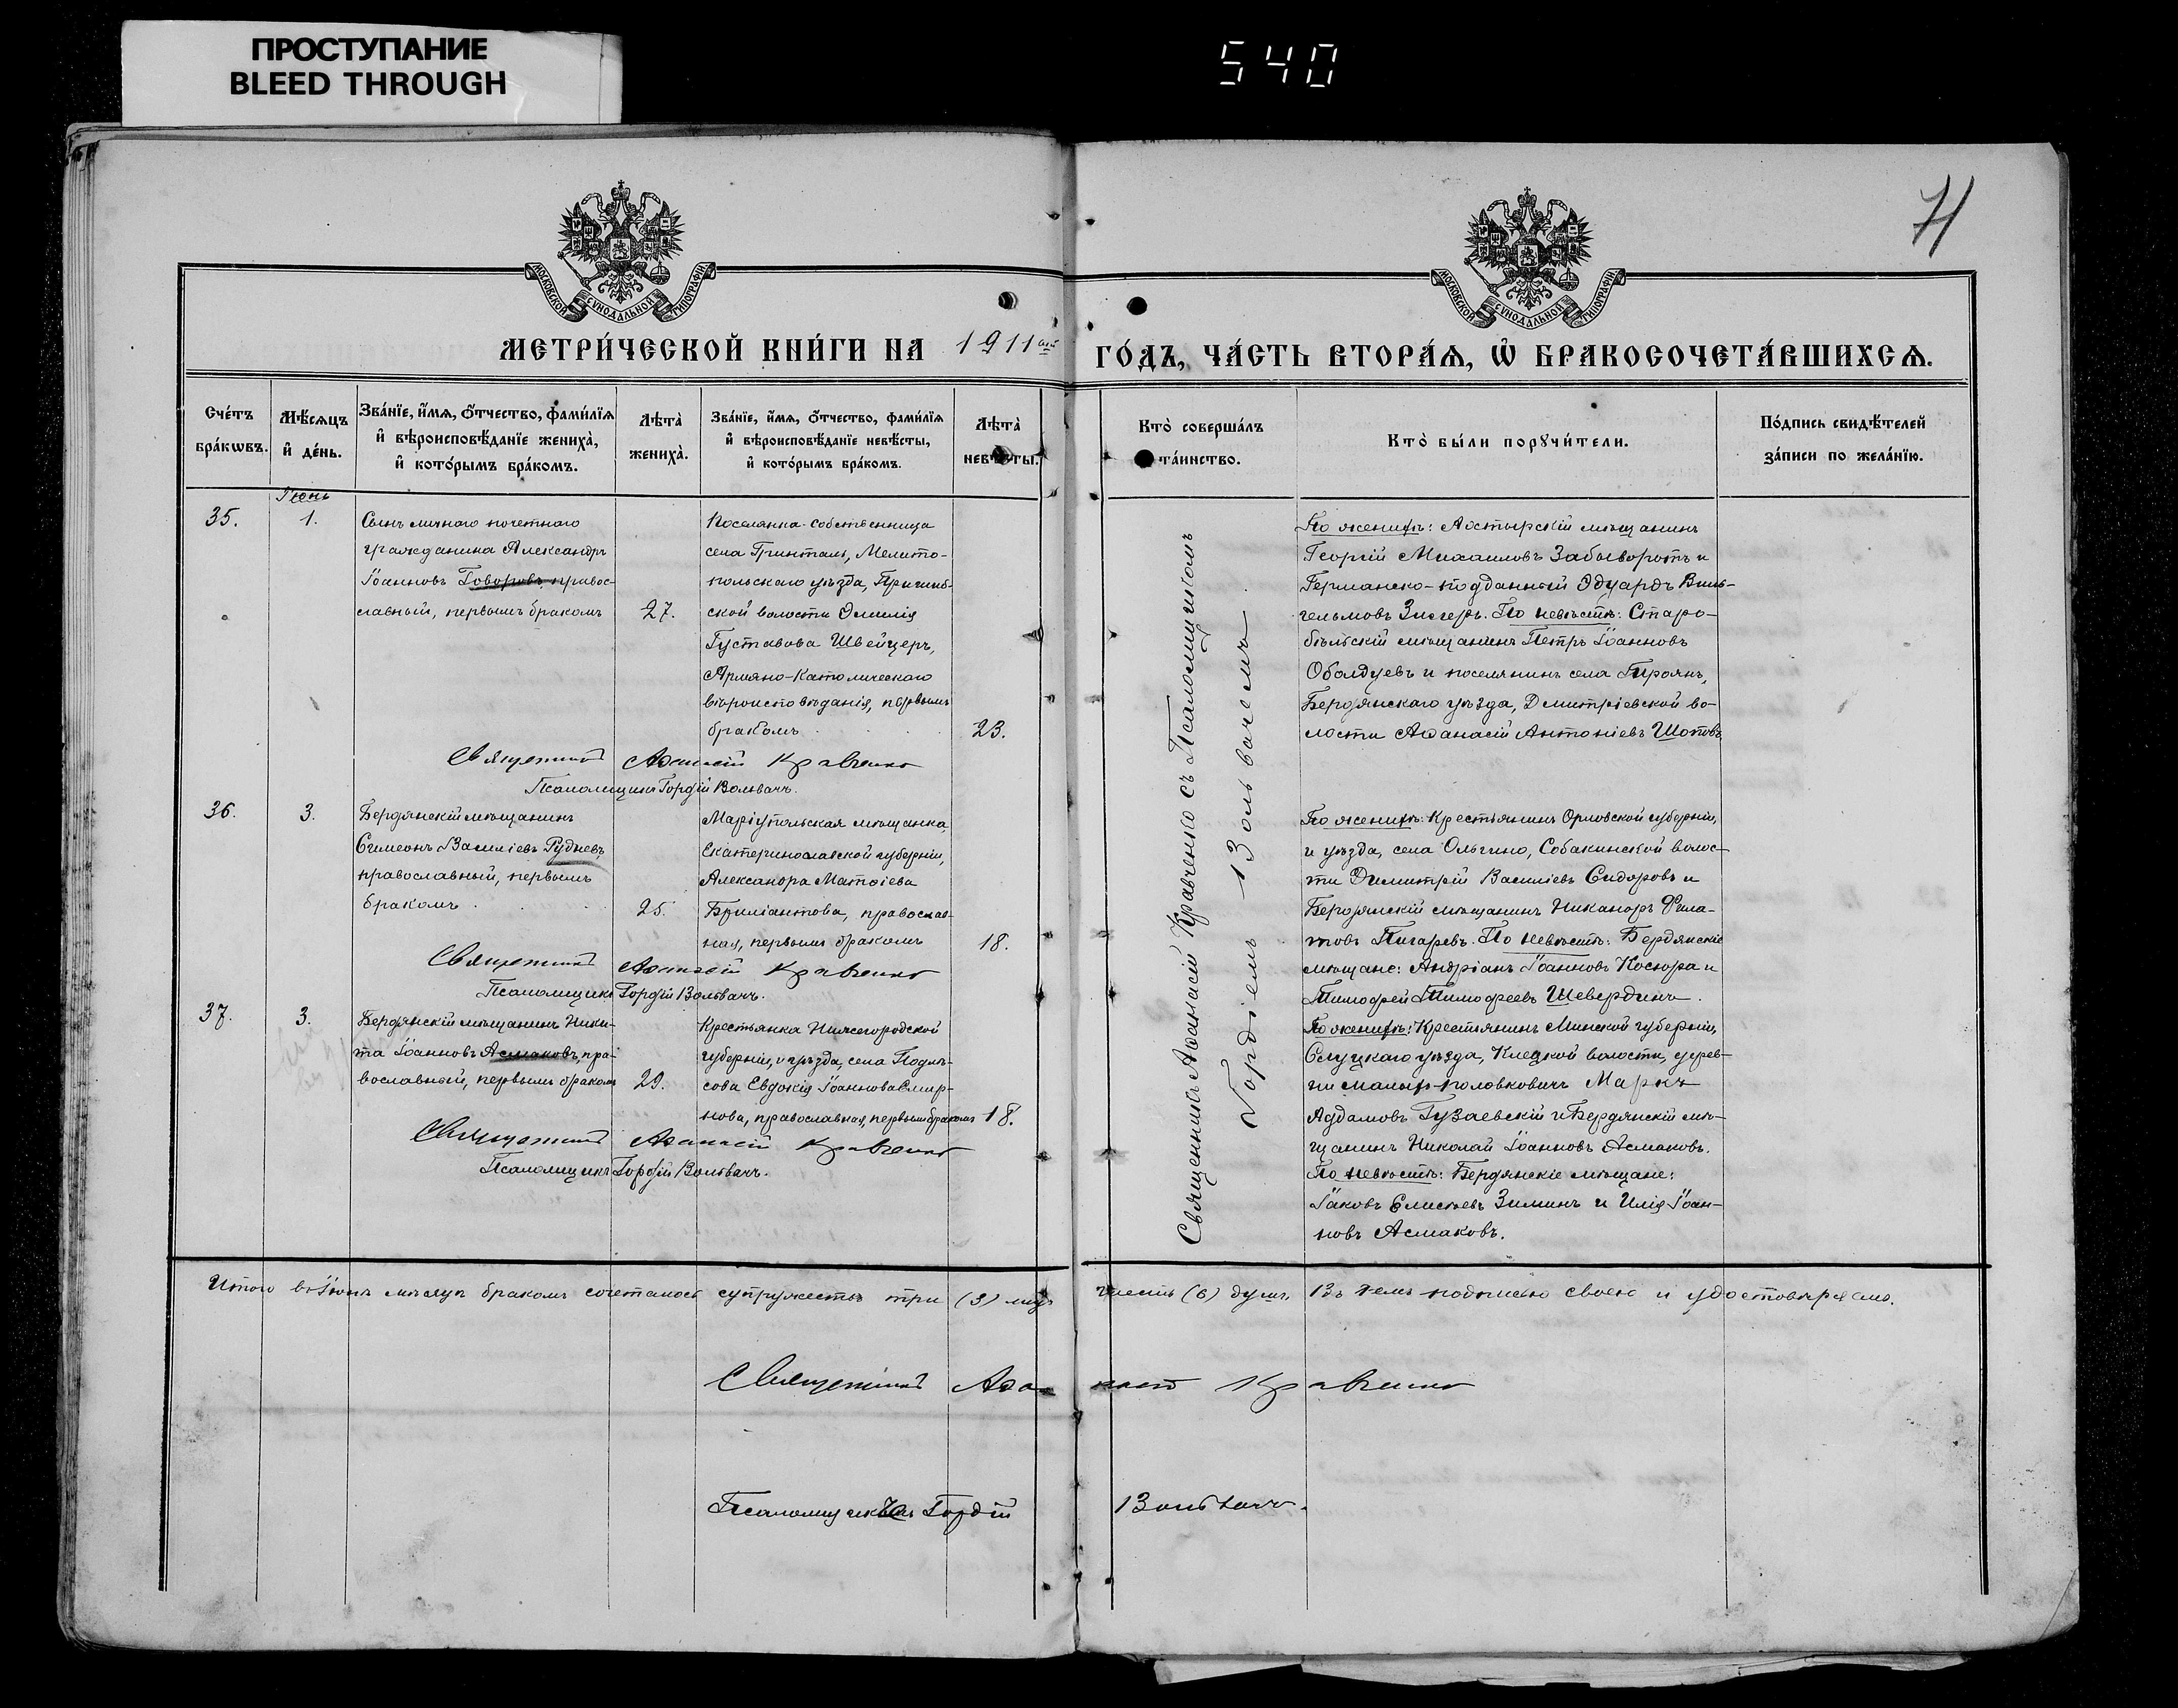 ПРОСТУПАНИЕ
BLEED THROUGH
540
71
МОСКОВСКОЙ СУНОДАЛЬНОЙ ТИПОГРАФІИ.
МОСКОВСКОЙ СУНОДАЛЬНОЙ ТИПОГРАФІИ.
МЕТРИ́ЧЕСКОЙ КНИ́ГИ НА 1911ый ГО́ДЪ, ЧА́СТЬ ВТОРА́Я, Ѡ҆ БРАКОСОЧЕТА́ВШИХСЯ.
Сче́тъ
бра́кѡвъ.
Мѣ́сяцъ
и҆ де́нь.
Зва́нїе, и҆́мя, ѻ҆́тчество, фами́лїя
и҆ вѣроисповѣ́данїе жениха̀,
и҆ кото́рымъ бра́комъ.
Лѣта̀
жениха̀.
Зва́нїе, и҆́мя, ѻ҆́тчество, фами́лїя
и҆ вѣроисповѣ́данїе невѣ́сты,
и҆ кото́рымъ бра́комъ.
Лѣта̀
невѣ́сты.
Кто̀ соверша́лъ
та́инство.
Кто̀ бы́ли порꙋчи́тели.
По́дпись свидѣ́телей
за́писи по жела́нїю.
Іюнь
35.
1.
Сынъ личнаго почетнаго
гражданина Александръ
Іоанновъ Говоровъ правос-
славный, первымъ бракомъ
27.
Поселянка-собственница
села Гринталь, Мелито-
польскаго уѣзда, Пришиб-
ской волости Эмилія
Густавова Швейцеръ,
Армяно-Католическаго
вѣроисповѣданія, первымъ
бракомъ
23.
По женихѣ: Ахтырскій мѣщанинъ
Георгій Михаиловъ Забыворотъ и
Германско-подданный Эдуардъ Виль-
гельмовъ Зигеръ. По невѣстѣ: Старо-
бѣльскій мѣщанинъ Петръ Іоанновъ
Оболдуевъ и поселянинъ села Гирянъ,
Бердянскаго уѣзда, Дмитріевской во-
лости Аѳанасій Антоніевъ Шоповъ
Священникъ Аѳанасій Кравченко
Псаломщикъ Гордій Вольвачъ.
36.
3.
Бердянскій мѣщанинъ
Симеонъ Василіевъ Рудневъ,
православный, первымъ
бракомъ
25.
Маріупольская мѣщанка,
Екатеринославской губерніи,
Александра Матѳіева
Бриліантова, православ-
ная, первымъ бракомъ
18.
По женихѣ: Крестьянинъ Орловской губерніи,
и уѣзда, села Ольгино, Собакинской волос-
ти Димитрій Василіевъ Сидоровъ и
Бердянскій мѣщанинъ Никаноръ Фила-
товъ Пигаревъ. По невѣстѣ: Бердянскіе
мѣщане: Андріанъ Іоанновъ Косюра и
Тимофей Тимофеевъ Шевердинъ.
Священникъ Аѳанасій Кравченко
Псаломщикъ Гордій Вольвачъ.
37.
3.
Бердянскій мѣщанинъ Ники-
та Іоанновъ Асмаковъ, пра-
вославный, первымъ бракомъ
29.
Крестьянка Нижегородской
губерніи, и уѣзда, села Подлѣ-
сова Евдокія Іоаннова Смир-
нова, православная, первымъ бракомъ
18.
По женихѣ: Крестьянинъ Минской губерніи,
Слуцкаго уѣзда, Клецкой волости, дерев-
ни Малыхъ-Половковичъ Маркъ
Аддамовъ Гузаевскій и Бердянскій мѣ-
щанинъ Николай Іоанновъ Асмаковъ.
По невѣстѣ: Бердянскіе мѣщане:
Іаковъ Елисѣевъ Зиминъ и Илія Іоан-
новъ Асмаковъ.
Священникъ Аѳанасій Кравченко
Псаломщикъ Гордій Вольвачъ.
Священникъ Аѳанасій Кравченко съ Псаломщикомъ
Гордіемъ Вольвачемъ
Итого въ Іюнѣ мѣсяцѣ бракомъ сочеталось супружествъ три (3) шесть (6) душъ. Въ чемъ подписью своею и удостовѣряемъ.
Священникъ Аѳанасій Кравченко
Псаломщикъ Гордій Вольвачъ.